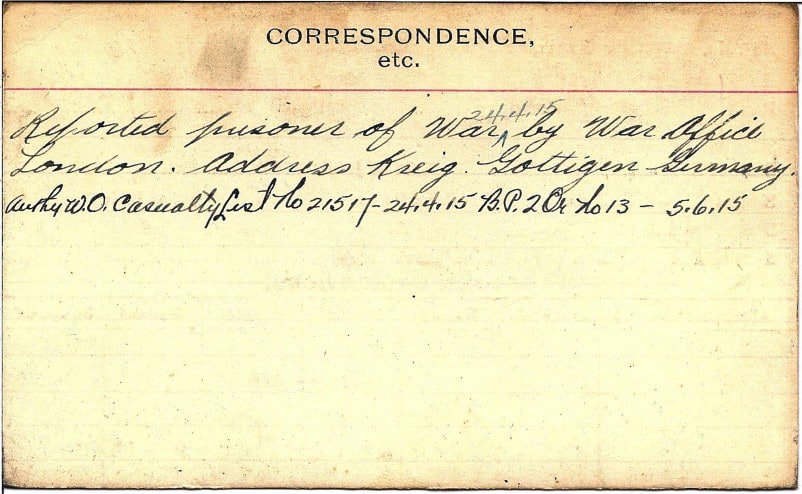 CORRESPONDENCE,
etc.
24.4.15
Reported prisoner of War ^ by War Office
London. Address Kreig. Gottigen Germany.
Authy W.O. Casualty List No 21517 - 24.4.15 B.P. 2 Or No 13 - 5.6.15